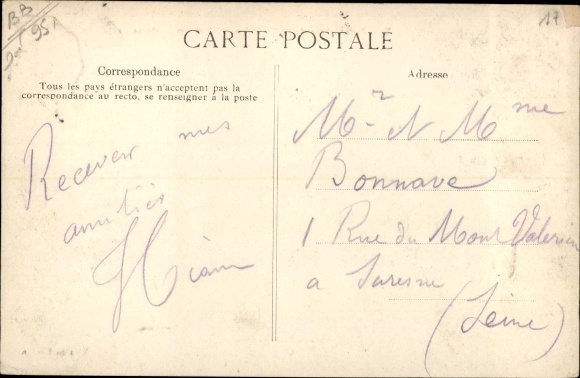 BB
95
17
CARTE POSTALE
Correspondance
Tous les pays étrangers n'acceptent pas la
correspondance au recto, se renseigner à la poste
Recever mes
amitiés
Adresse
Mr et Mme
Bonnave
1 Rue du Mont Valerien
a Suresne
(Seine)